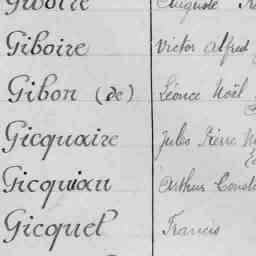 Giboire Auguste
Giboire Victor Alfred
Gibon (de) Léonce Noël
Gicquaire Jules Pierre
Gicquiau Arthur
Gicquel Francis